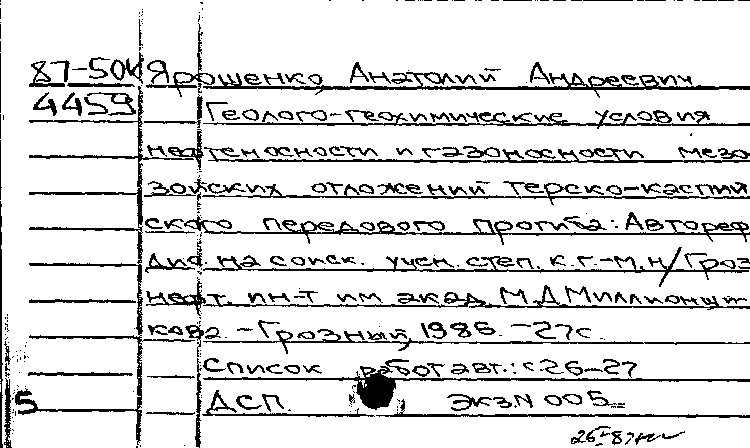 87-50к Ярошенко, Анатолий Андреевич
4459 Геолого-геохимические условия
нефтеносности и газоносности мезо
зойских отложений Терско-Каспий
ского передового прогиба: Автореф
дис. на соиск. учен. степ. к. г.-м. н/Гроз
нефт. ин-т им акад М.Д.Миллионщи
кова. - Грозный, 1986. - 27с.
Список работ авт.: с.26-27
5 ДСП. Экз.N 005